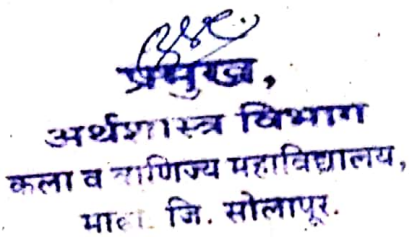 प्रमुख,
अर्थशास्त्र विभाग
कला व वाणिज्य महाविद्यालय,
जि. सोलापूर.